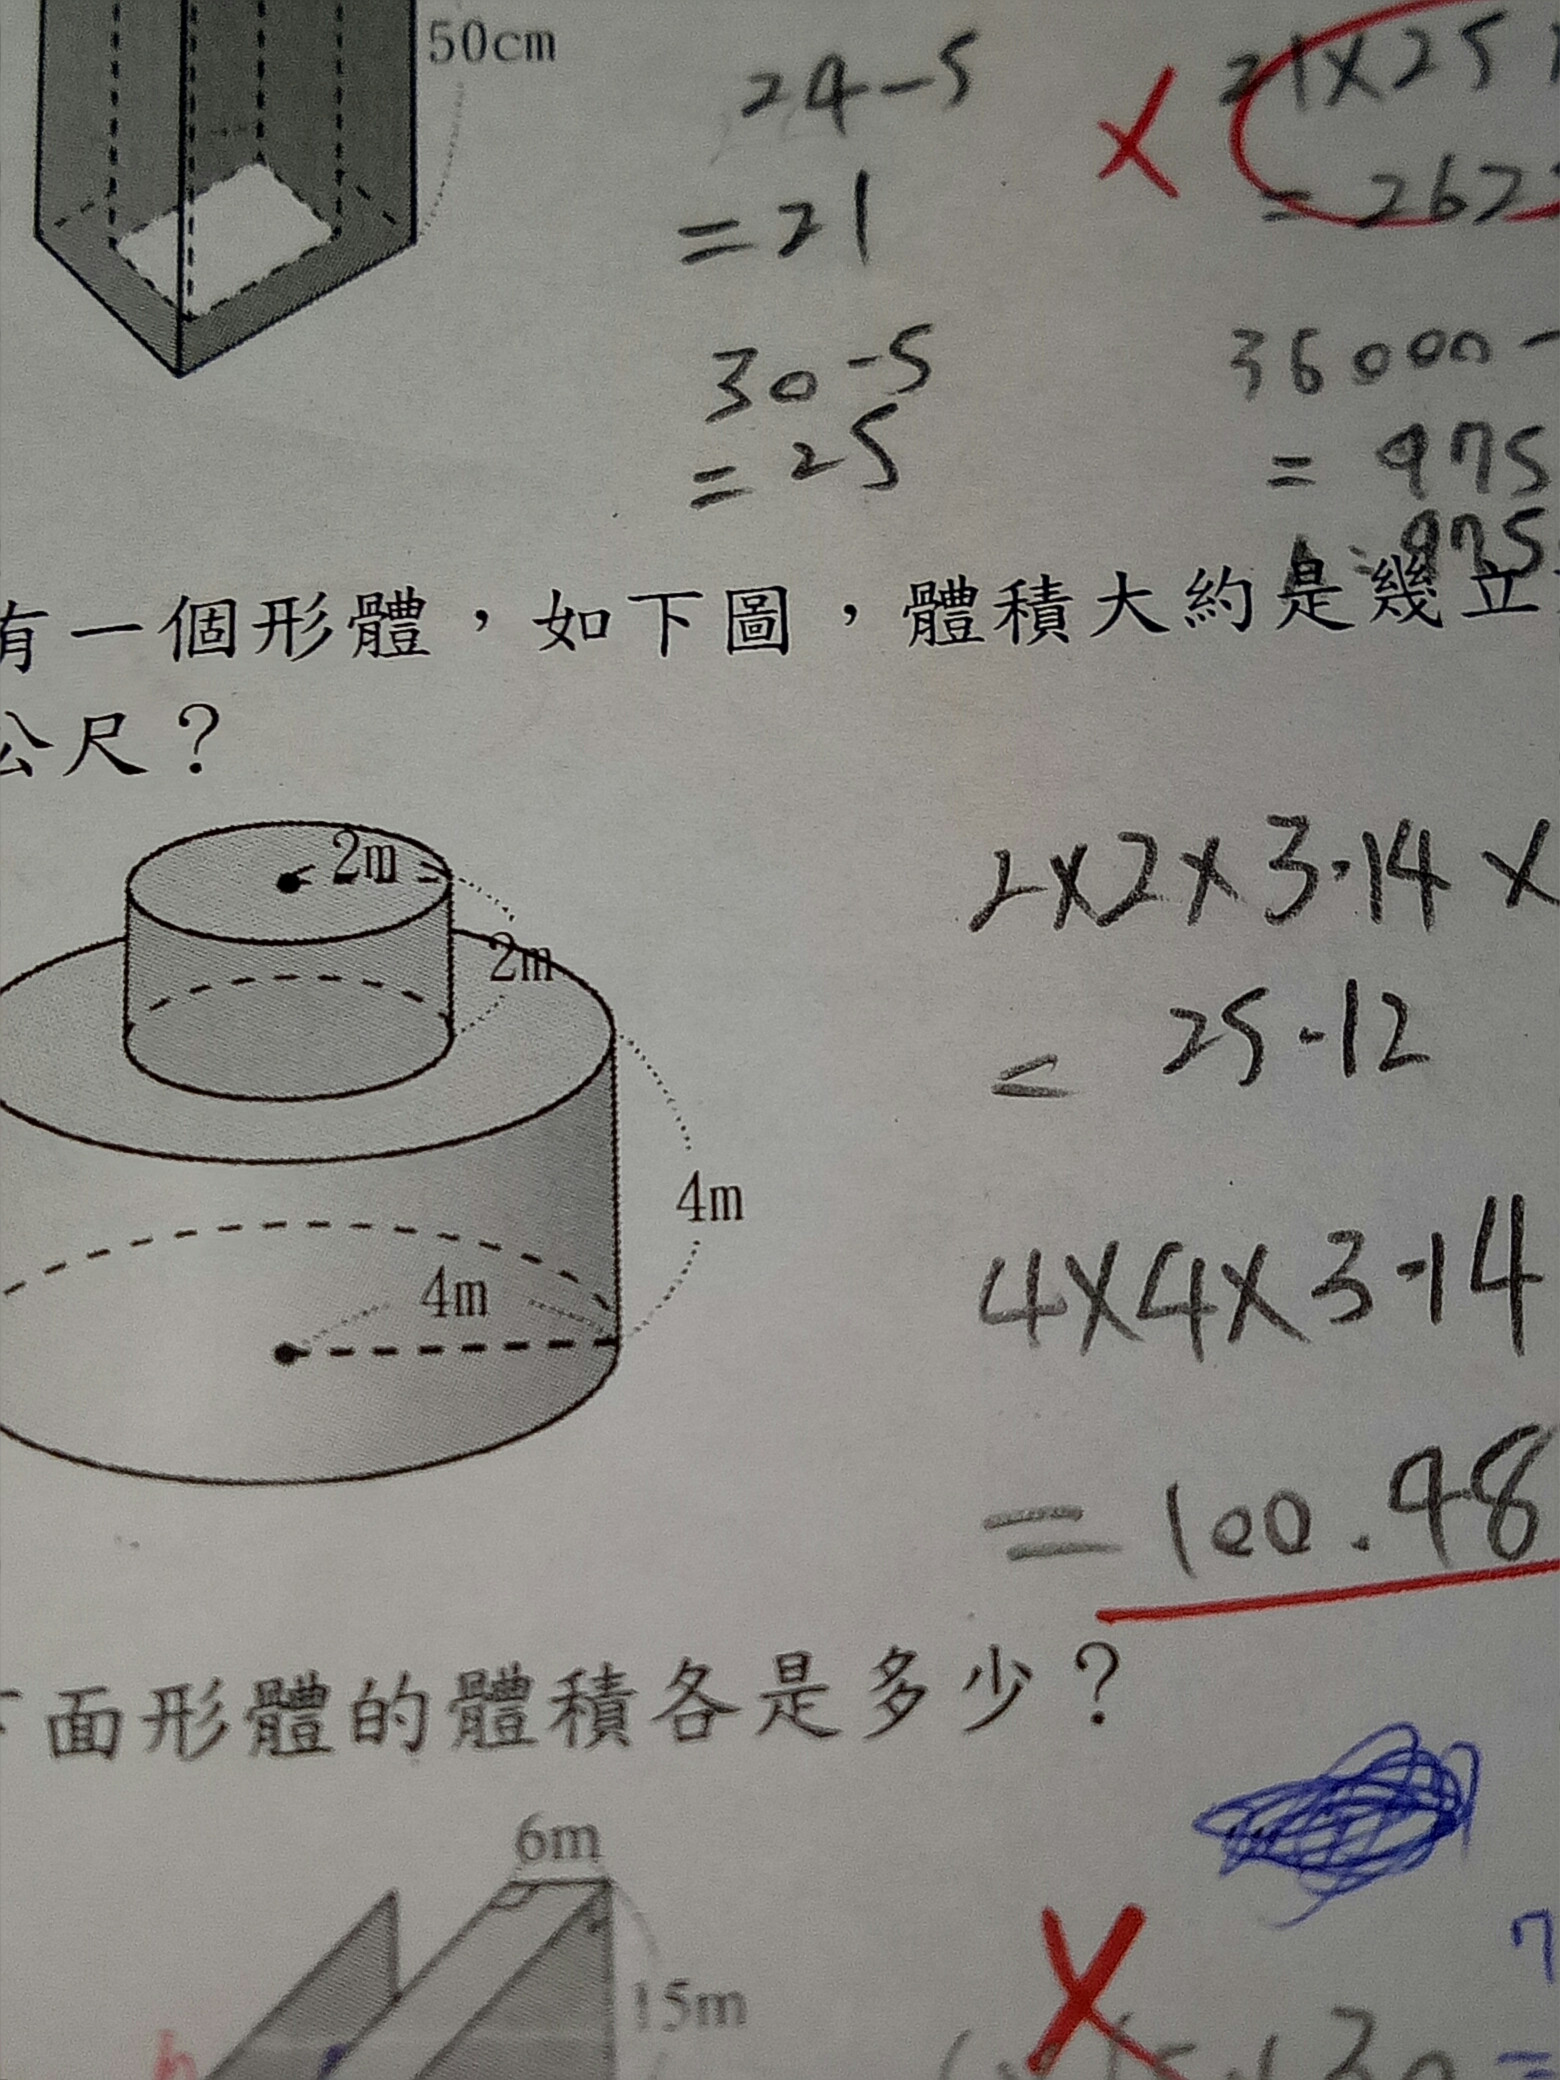 50cm
24-5
=21
30-5
=25
21×25
= 262
36000-
= 975
975
有一個形體，如下圖，體積大約是幾立
公尺？
2m
2m
4m
4m
2×2×3.14×
= 25.12
4×4×3.14
=100.48
下面形體的體積各是多少？
6m
15m
h
7